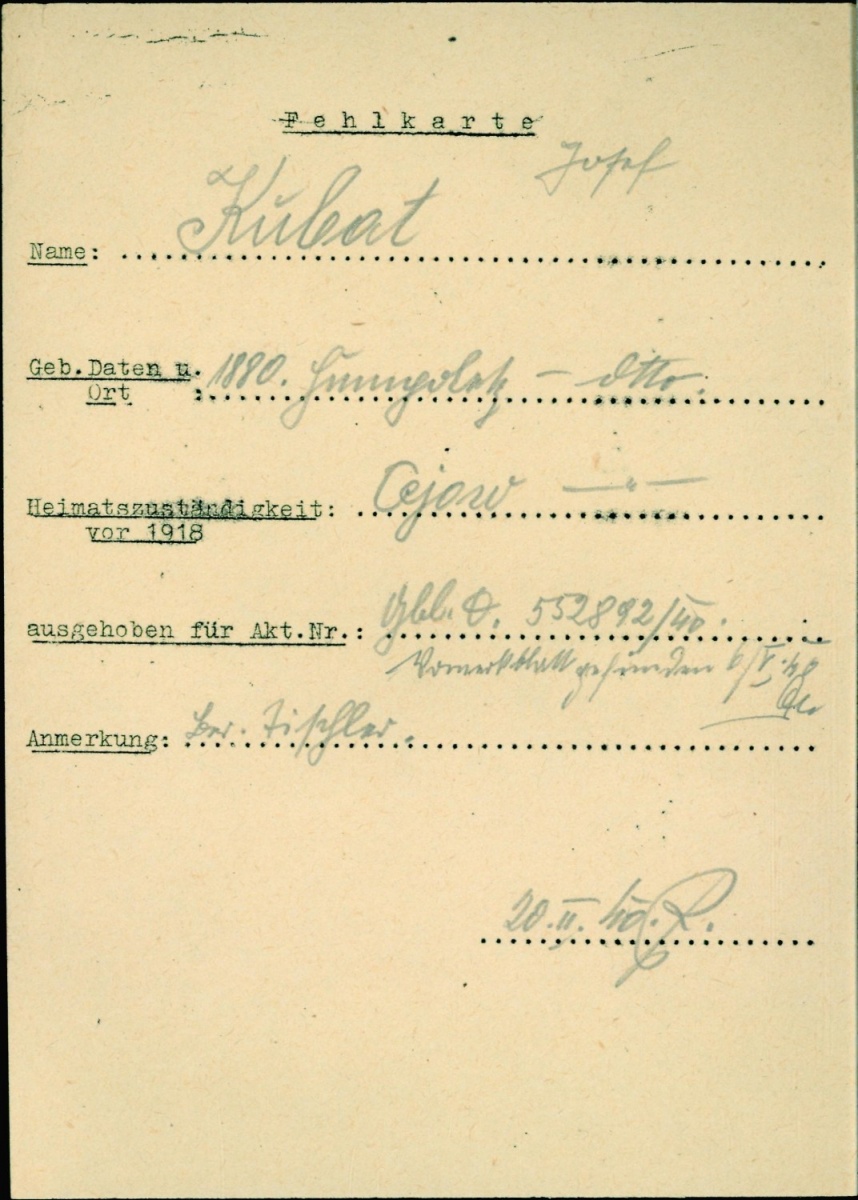 Fehlkarte
Josef
Name: Kubat
Geb. Daten u. Ort: 1880. Humpoletz – dtto.
Heimatszuständigkeit: Cejow — " —
vor 1918
ausgehoben für Akt.Nr.: Gbl. D. 552892/40.
Vormerkblatt gefunden 6/V. 40
Anmerkung: Ber. Tischler.
20.II.40.